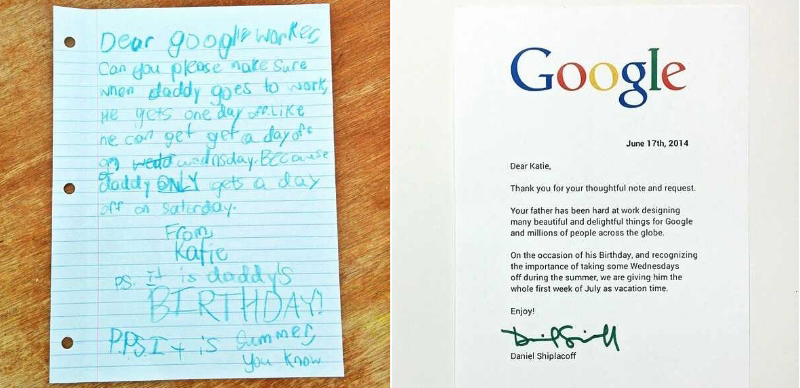 Dear google worker,
Can you please make sure
when daddy goes to work,
He gets one day off. Like
he can get get a day off
on wedd wednsday. BECause
daddy ONLY gets a day
off on Saturday.
From,
Katie
P.S. It is daddy's
BIRTHDAY!
P.P.S. It is summer,
you know
Google
June 17th, 2014
Dear Katie,
Thank you for your thoughtful note and request.
Your father has been hard at work designing
many beautiful and delightful things for Google
and millions of people across the globe.
On the occasion of his Birthday, and recognizing
the importance of taking some Wednesdays
off during the summer, we are giving him the
whole first week of July as vacation time.
Enjoy!
Daniel Shiplacoff